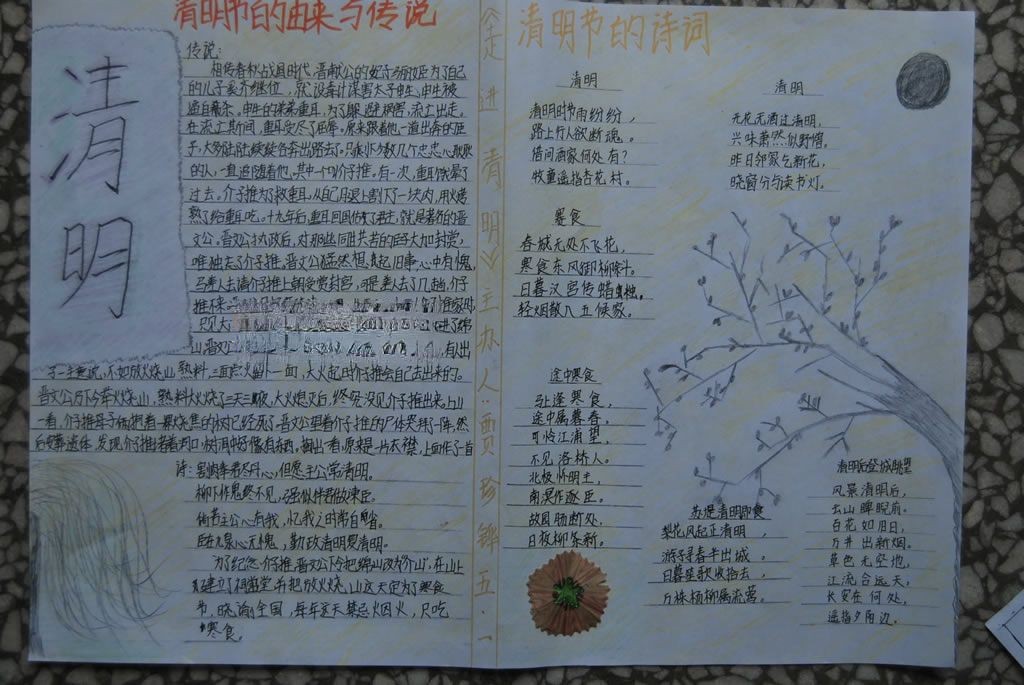 清明节的由来与传说
清明
传说：
相传春秋战国时代，晋献公的妃子骊姬为了自己
的儿子奚齐继位，就设毒计谋害太子申生，申生被
逼自杀。申生的弟弟重耳，为了躲避祸害，流亡出走。
在流亡期间，重耳受尽了屈辱。原来跟着他一道出奔的臣
子，大多陆陆续续各奔出路去了。只剩少数几个忠心耿耿
的人，一直追随着他。其中一个叫介子推。有一次，重耳饿晕了
过去。介子推为了救重耳，从自己腿上割下一块肉，用火烤
熟了给重耳吃。十九年后，重耳回国做了君主，就是著名的晋
文公。晋文公执政后，对那些同甘共苦的臣子大加封赏，
唯独忘了介子推。晋文公猛然想起旧事，心中有愧，
马上差人去请介子推上朝受赏封官。可是，差人去了几趟，介子
推不来
只见大
山。晋文公 有人出
了一主意说，不如放火烧山，三面点火，留下一面，大火起时介子推会自己走出来的。
晋文公乃下令举火烧山，孰料大火烧了三天三夜，大火熄灭后，终究没见介子推出来。上山
一看，介子推母子俩抱着一棵烧焦的大树已经死了。晋文公望着介子推的尸体哭拜一阵，然
后安葬遗体，发现介子推脊梁堵着个柳树树洞，洞里好像有东西。掏出一看，原来是一片衣襟，上面作了一首
诗：割肉奉君尽丹心，但愿主公常清明。
柳下作鬼终不见，强似伴君做谏臣。
倘若主公心有我，忆我之时常自省。
臣在九泉心无愧，勤政清明复清明。
为了纪念介子推，晋文公下令把绵山改为"介山"，在山上
建立了祠堂，并把放火烧山这天定为了寒食
节，晓谕全国，每年这天禁忌烟火，只吃
寒食。
走进清明♡主办人：贾珍铧五·一
清明节的诗词
清明
清明时节雨纷纷，
路上行人欲断魂。
借问酒家何处有？
牧童遥指杏花村。
寒食
春城无处不飞花，
寒食东风御柳斜。
日暮汉宫传蜡烛，
轻烟散入五侯家。
途中寒食
马上逢寒食，
途中属暮春。
可怜江浦望，
不见洛桥人。
北极怀明主，
南溟作逐臣。
故园肠断处，
日夜柳条新。
清明
无花无酒过清明，
兴味萧然似野僧。
昨日邻家乞新花，
晓窗分与读书灯。
苏堤清明即事
梨花风起正清明，
游子寻春半出城。
日暮笙歌收拾去，
万株杨柳属流莺。
清明后登城眺望
风景清明后，
云山睥睨前。
百花如旧日，
万井出新烟。
草色无空地，
江流合远天；
长安在何处，
遥指夕阳边。